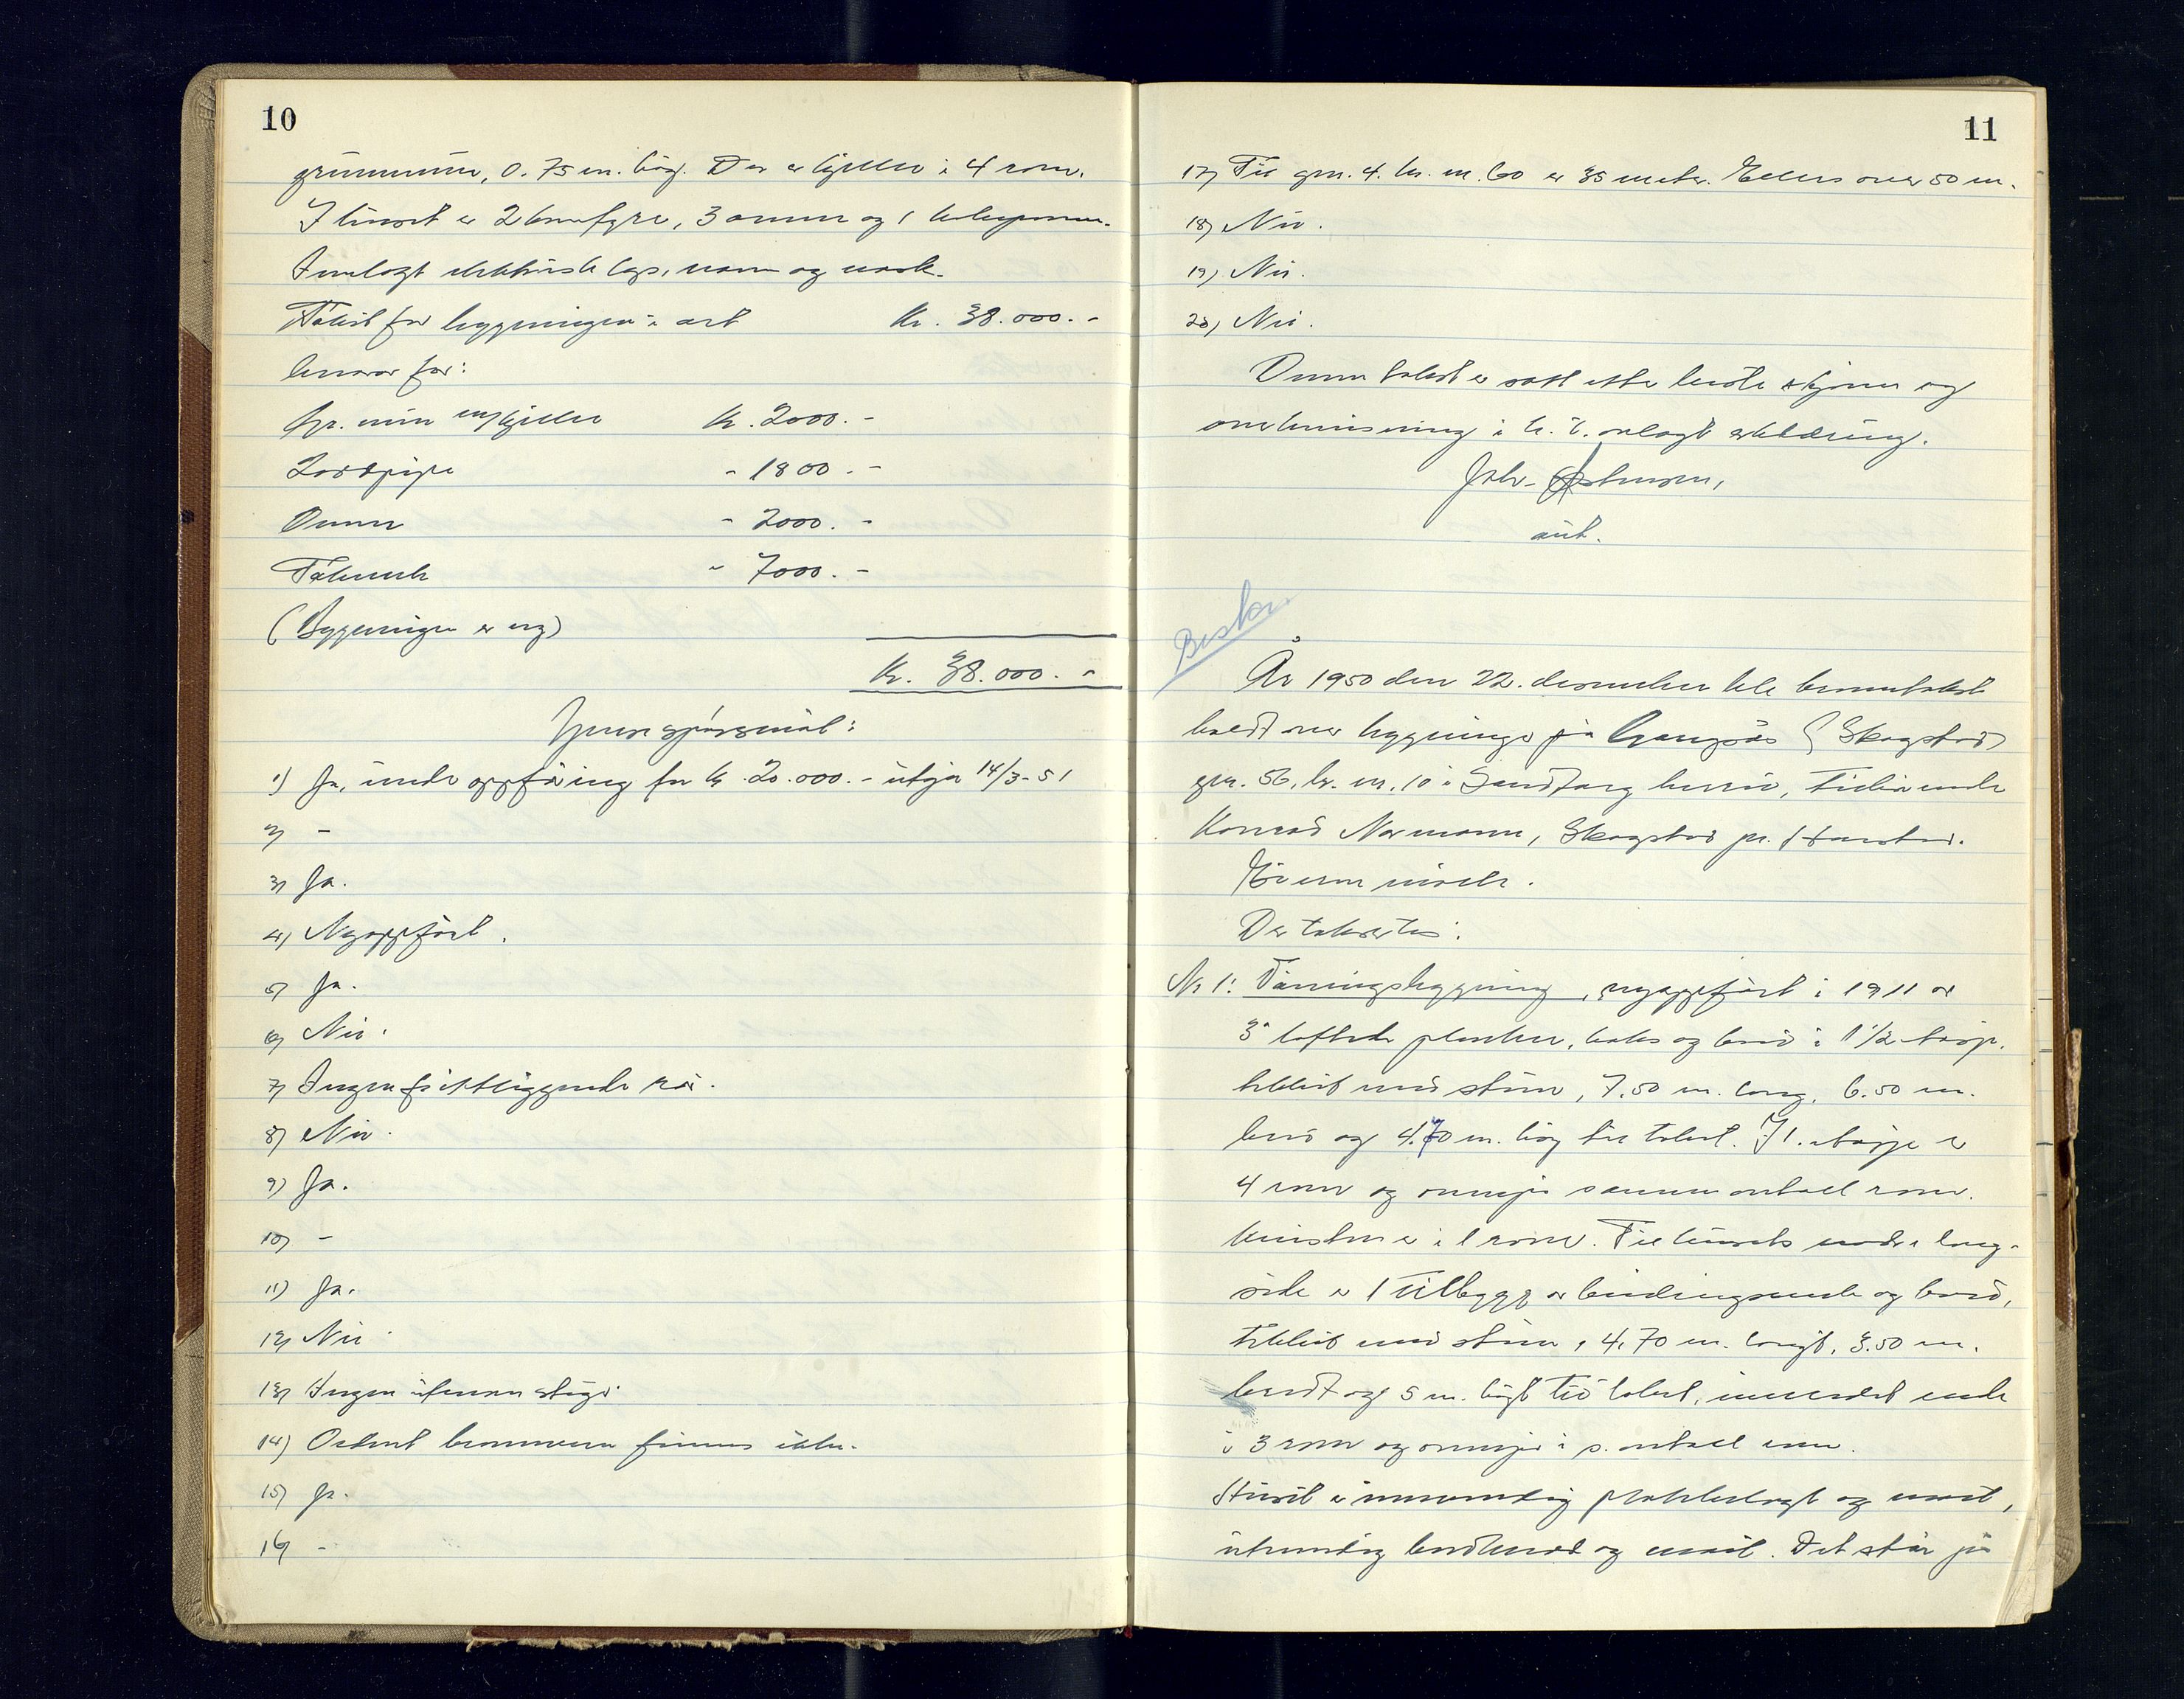 10
grunnmur, 0.75 m. høg. Der er kjeller i 4 rom.
I huset er 2 komfyre, 3 ovner og 1
Innlagt elektrisk lys, vann og vask.
Takst for bygningen i alt Kr. 38.000.-
herav for:
Gr. mur m/kjeller kr. 2000.-
Loddpipe - 1800.-
Ovner - 2000.-
Takverk - 7000.-
(Bygningen er ny)
Kr. 38.000.-
Spørsmål:
1) Ja, under oppføring for kr. 20.000.- utgår 14/3-51
2) -
3) Ja.
4) Nyoppført.
5) Ja.
6) Nei.
7) Ingen frittliggende rør.
8) Nei.
9) Ja.
10) -
11) Ja.
12) Nei.
13) Ingen utvendig stige.
14) Ordnet brannvern finnes ikke.
15) Ja.
16) -
11
17) Til gnr. 4. br. nr. 60 er 35 meter. Ellers over 50 m.
18) Nei.
19) Nei.
20) Nei.
Denne takst er satt etter beste skjønn og
overbevisning i h. t. avlagt erklæring.
Joh.
aut.
År 1950 den 22. desember ble branntakst
holdt over bygninger på Gangsås (Skogstad)
gnr. 56, br. nr. 10 i Sandtorg herred, tilhørende
Konrad Normann, Skogstad pr. Harstad.
Eieren møtte.
Der takseres:
Nr 1: Våningsbygning, nyoppført i 1911 av
3" laftede planker, og bord i 1 1/2 etasje,
tekket med skifer, 7.50 m. lang, 6.50 m.
bred og 4.70 m. høg til taket. I 1. etasje er
4 rom og ovenpå samme antall rom.
Kvisten er i 1 rom. Til husets nordre lang-
side er 1 tilbygg av bindingsverk og bord,
tekket med skifer, 4,70 m. langt, 3.50 m.
bredt og 5 m. høgt til taket, innredet nede
i 3 rom og ovenpå i s. antall rom.
Huset er innvendig platekledt og malt,
utvendig bordkledd og malt. Det står på